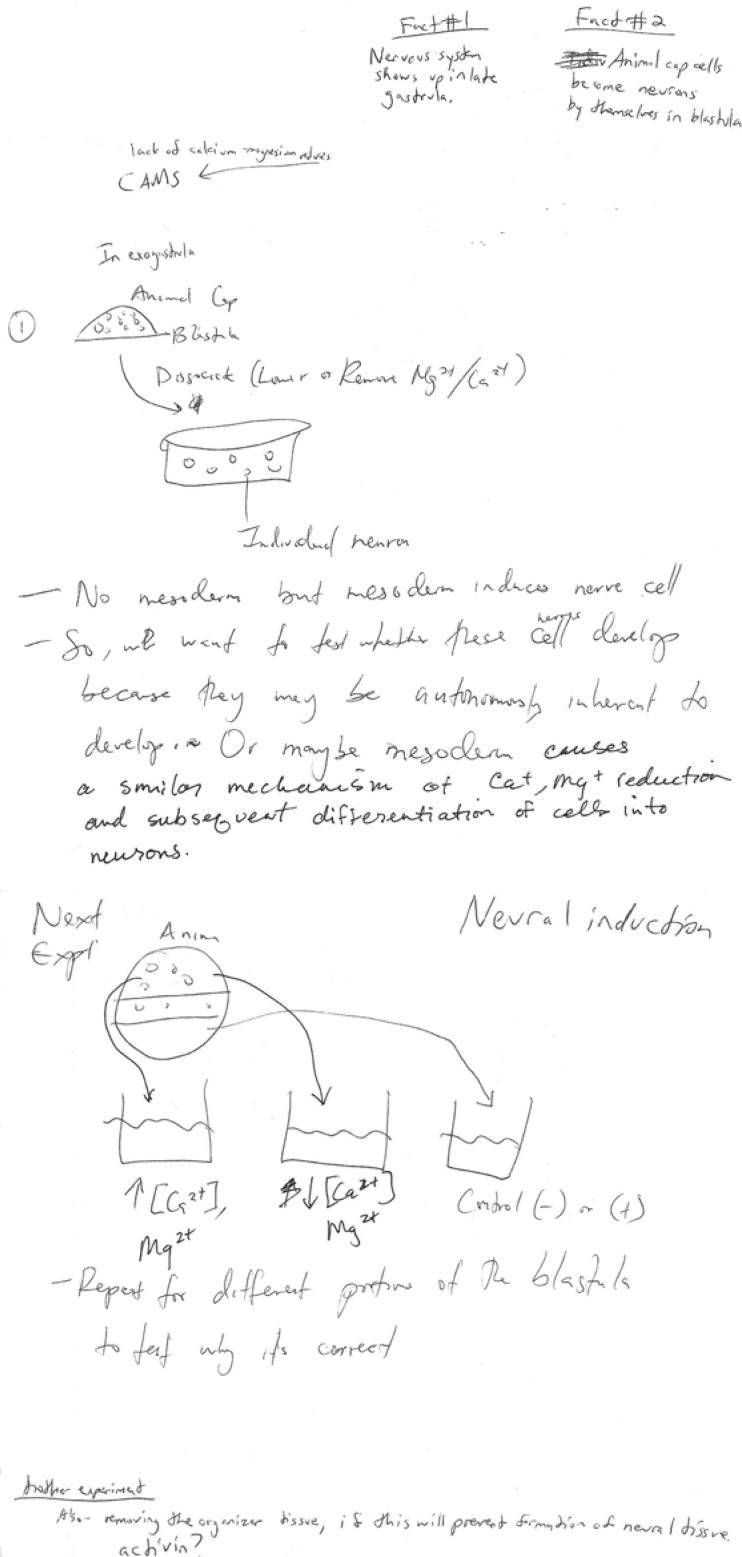 Fact #1
Nervous system
shows up in late
gastrula.
Fact #2
Animal cap cells
become neurons
by themselves in blastula
lack of calcium magnesium
CAMS
In exogastrula
Animal Cap
①
Blastula
Dissociate (Lower or Remove Mg²⁺/Ca²⁺)
Individual neuron
— No mesoderm but mesoderm induces nerve cell
— So, we want to test whether these nerves cell develop
because they may be autonomously inherent to
develop. Or maybe mesoderm causes
a similar mechanism of Ca+, Mg+ reduction
and subsequent differentiation of cells into
neurons.
Next
Expt
Neural induction
Anima
↑ [Ca²⁺],
Mg²⁺
↓ [Ca²⁺]
Mg²⁺
Control (-) or (+)
- Repeat for different portions of the blastula
to test why it's correct
Another experiment
Also- removing the organizer tissue, if this will prevent formation of neural tissue.
activin?